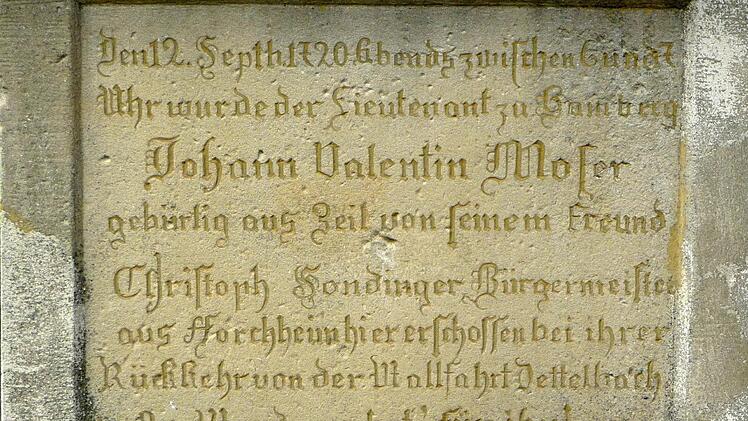 Den 12. Septb. 1720 Abends zwischen 6 und 7
Uhr wurde der Lieutenant zu Bamberg
Johann Valentin Moser
gebürtig aus Zeil von seinem Freund
Christoph Sondinger Bürgermeister
aus Forchheim hier erschossen bei ihrer
Rückkehr von der Wallfahrt Dettelbach.